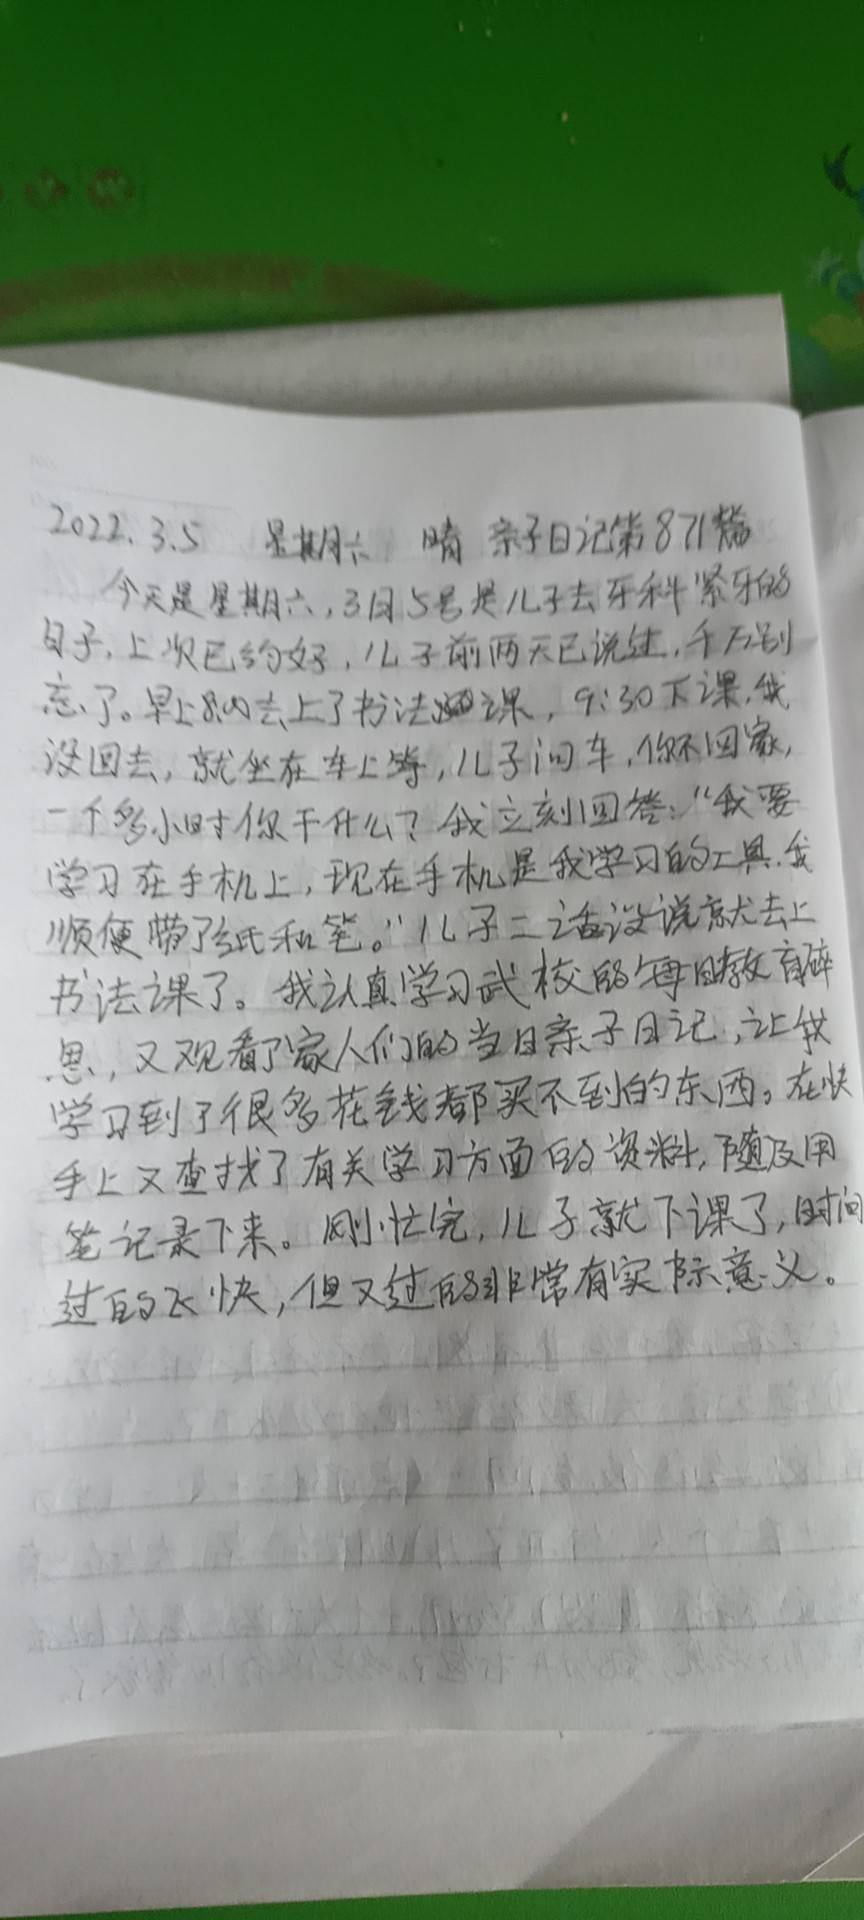 2022.3.5 星期六 晴 亲子日记第871篇
今天是星期六,3月5号是儿子去牙科紧牙的
日子,上次已约好,儿子前两天已说过,千万别
忘了。早上8:00去上了书法课,9:30下课,我
没回去,就坐在车上等,儿子问车,你不回家,
一个多小时你干什么?我立刻回答:“我要
学习在手机上,现在手机是我学习的工具,我
顺便带了纸和笔。”儿子二话没说就去上
书法课了。我认真学习武校的每日教育碎
思,又观看了家人们的当日亲子日记,让我
学习到了很多花钱都买不到的东西。在快
手上又查找了有关学习方面的资料,随及用
笔记录下来。刚忙完,儿子就下课了,时间
过的飞快,但又过的非常有实际意义。